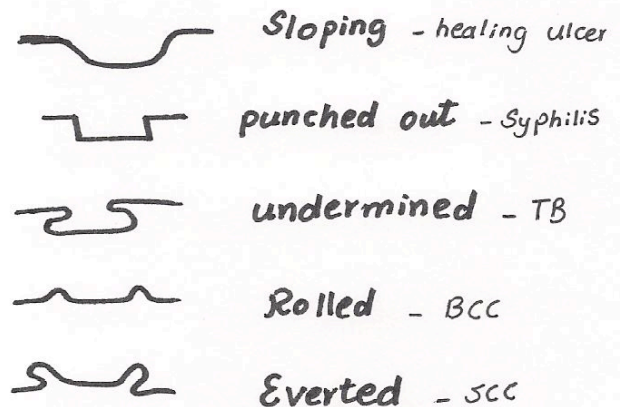 Sloping - healing ulcer
punched out - Syphilis
undermined - TB
Rolled - BCC
Everted - SCC